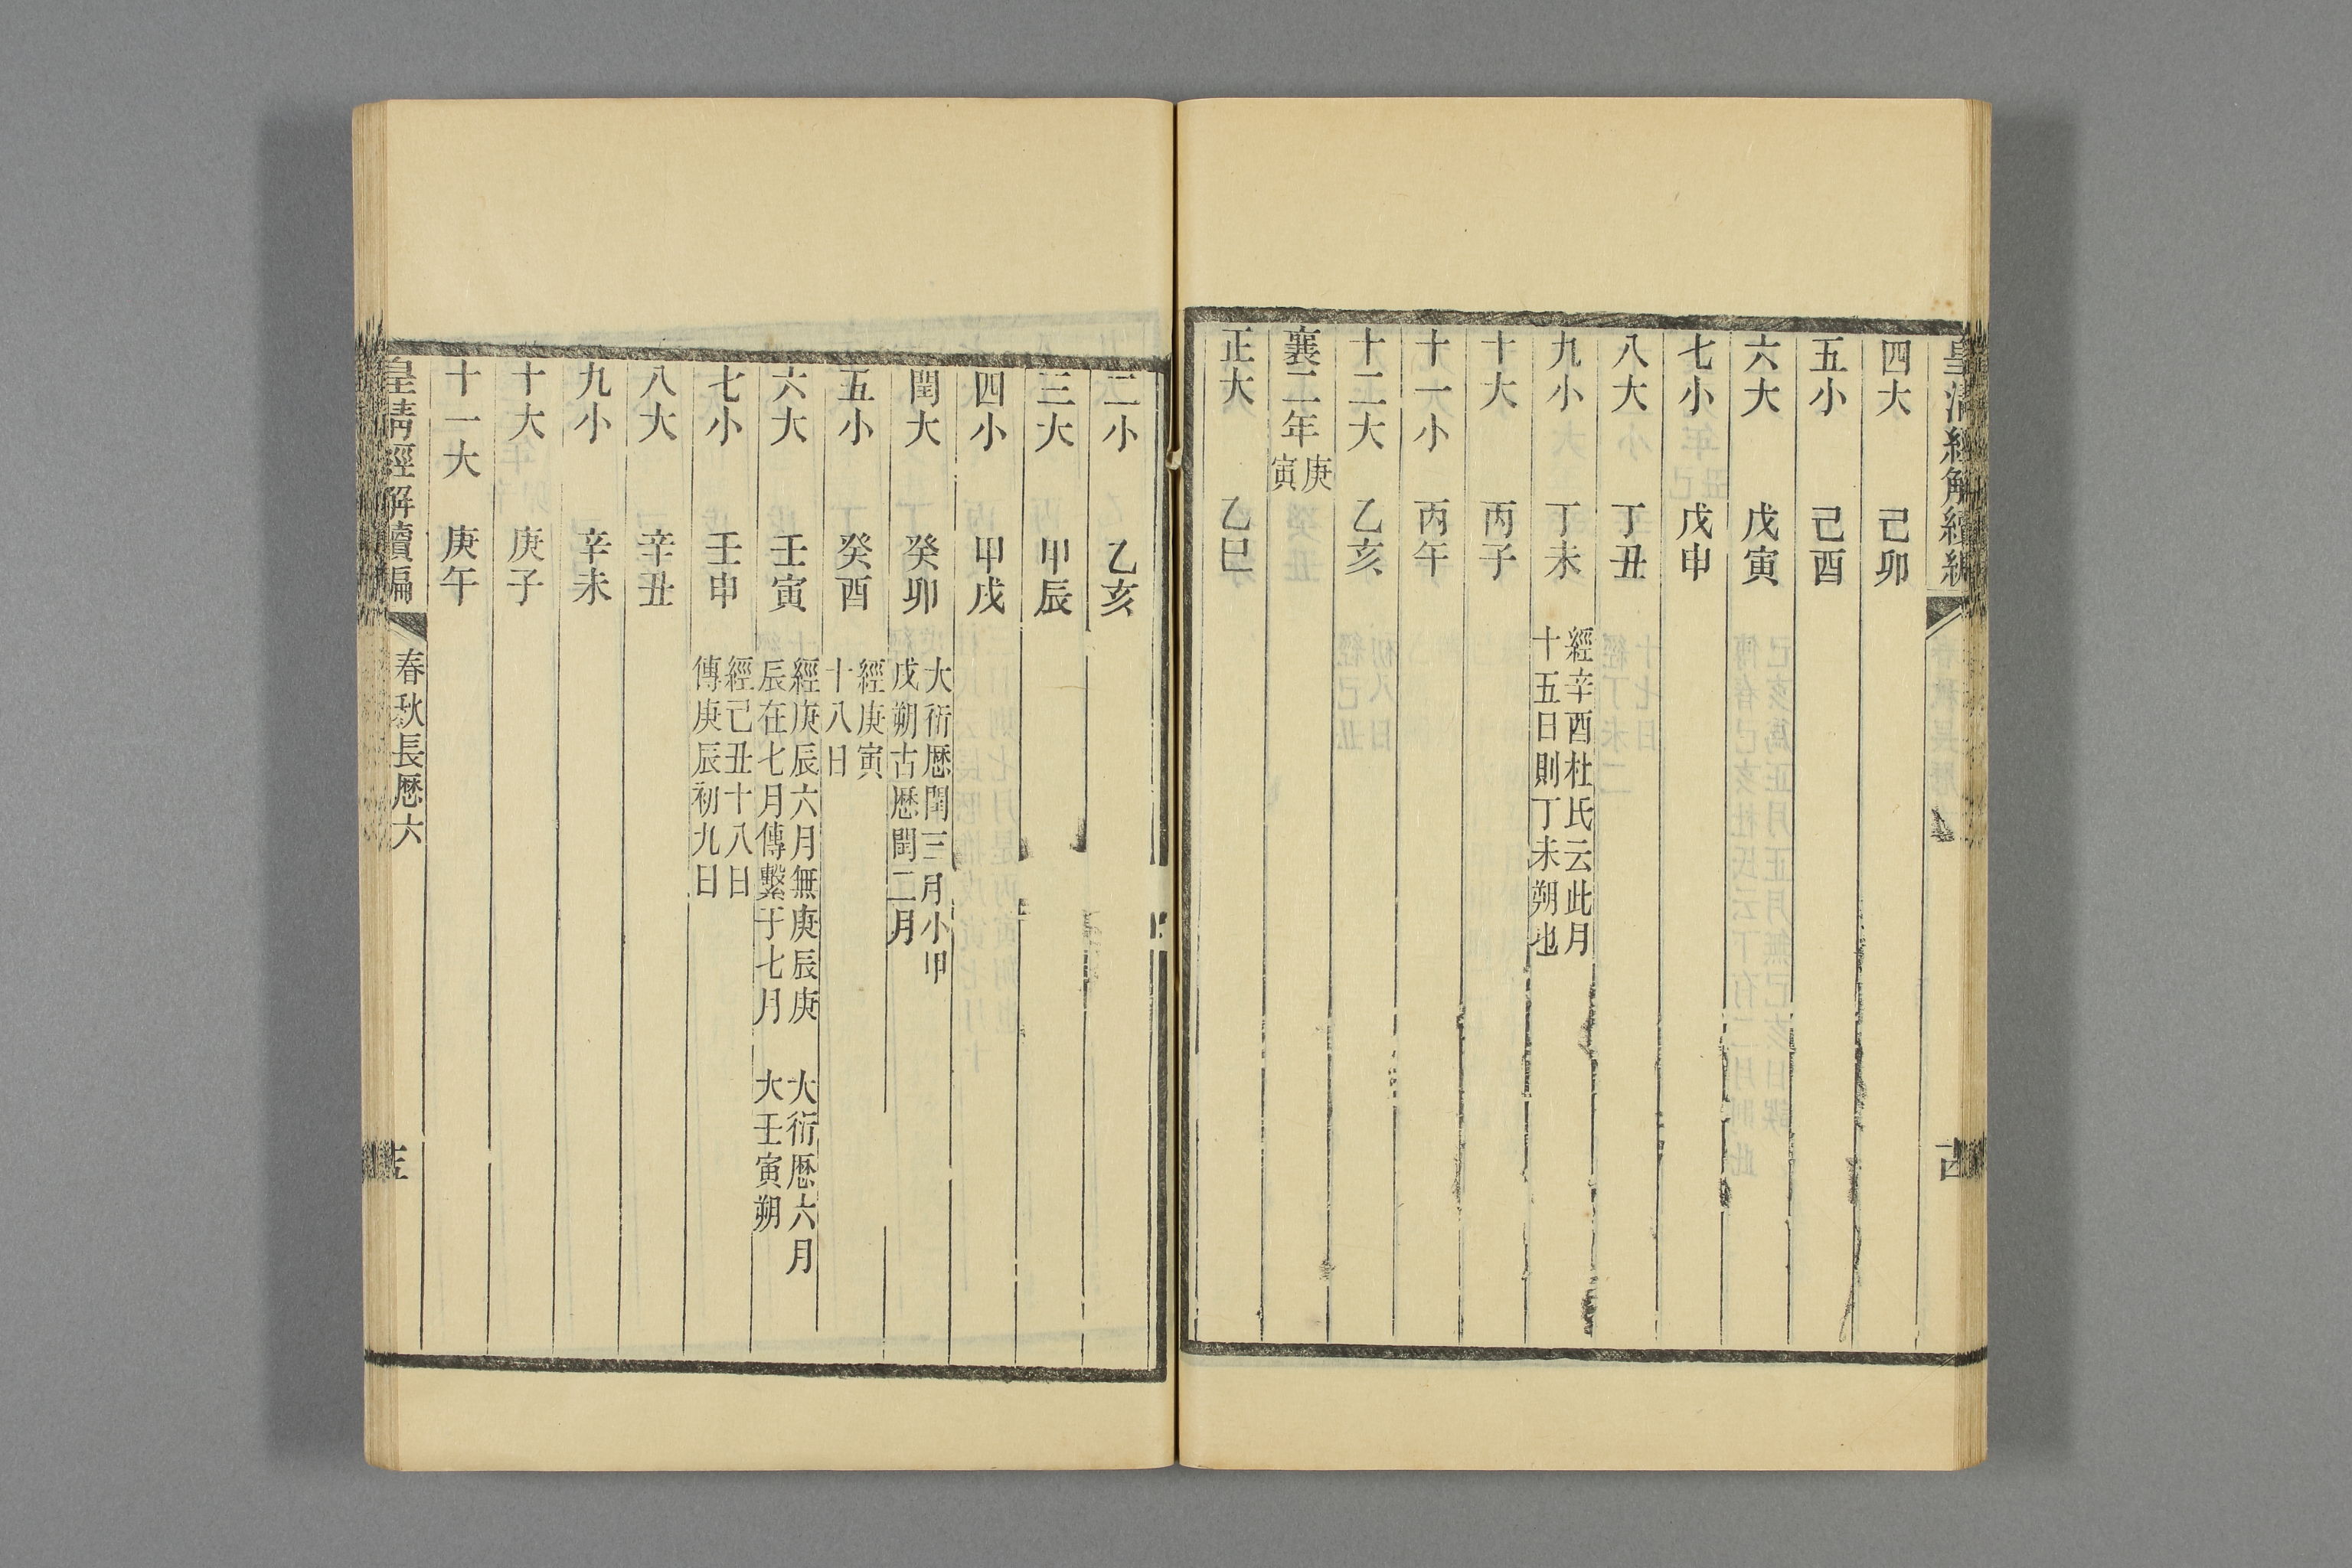 皇清經解續編
四大 己卯
五小 己酉
六大 戊寅
七小 戊申
八大 丁丑
九小 丁未 經辛酉杜氏云此月
十五日則丁未朔也
十大 丙子
十一小 丙午
十二大 乙亥
襄二年庚
寅
正大 乙巳
二小 乙亥
三大 甲辰
四小 甲戌
閏大 癸卯 大衍厯閏三月小甲
戌朔古厯閏二月
五小 癸酉 經庚寅
十八日
六大 壬寅 經庚辰六月無庚辰庚
辰在七月傳繫于七月
大衍厯六月
大壬寅朔
七小 壬申 經己丑十八日
傳庚辰初九日
八大 辛丑
九小 辛未
十大 庚子
十一大 庚午
皇清經解續編 春秋長厯六